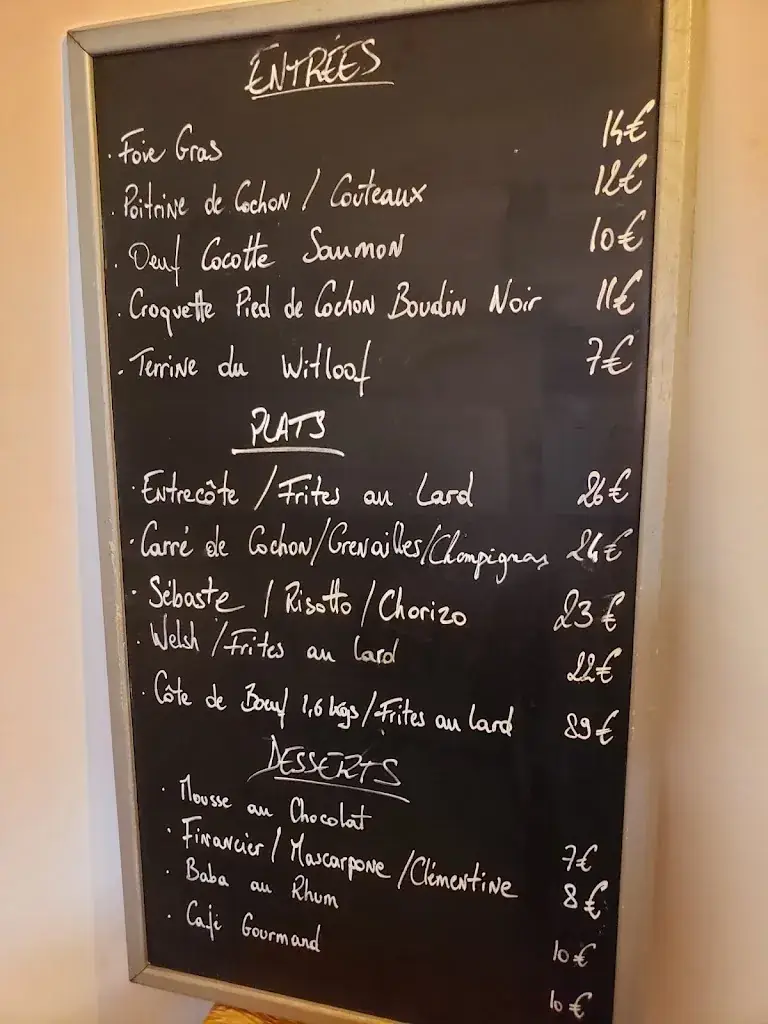 ENTRÉES
. Foie Gras 14€
. Poitrine de Cochon / Couteaux 12€
. Oeuf Cocotte Saumon 10€
. Croquette Pied de Cochon Boudin Noir 11€
. Terrine du Witloof 7€
PLATS
. Entrecôte / Frites au Lard 26€
. Carré de Cochon/Grenailles/Champignons 24€
. Sébaste / Risotto / Chorizo 23€
. Welsh / Frites au Lard 22€
. Côte de Boeuf 1,6 kgs / Frites au Lard 89€
DESSERTS
. Mousse au Chocolat 7€
. Financier / Mascarpone / Clémentine 8€
. Baba au Rhum 10€
. Café Gourmand 10€